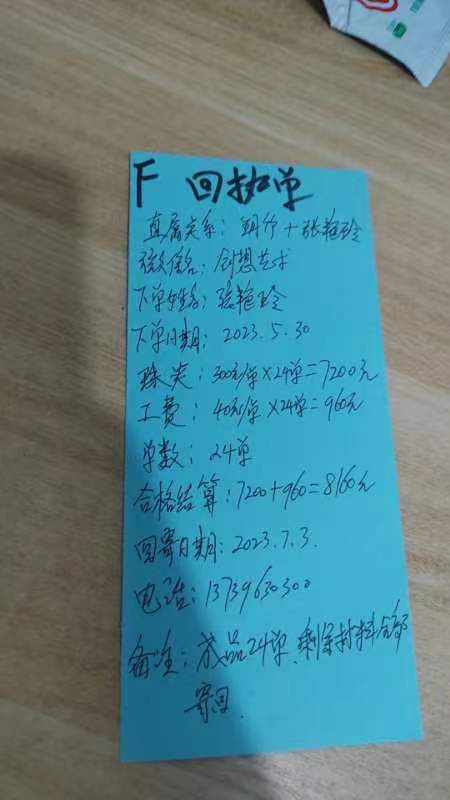 F 回执单
直属关系：朝行+张艳玲
微信名：创想艺术
下单姓名：张艳玲
下单日期：2023.5.30
珠类：300元/单×24单=7200元
工费：40元/单×24单=960元
单数：24单
合格结算：7200+960=8160元
回寄日期：2023.7.3.
电话：13739630300
备注：成品24单、剩余材料全部
寄回.